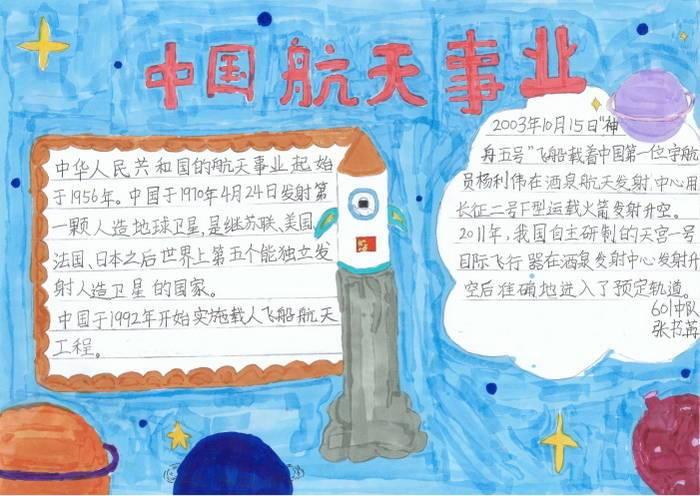 中国航天事业
中华人民共和国的航天事业起始
于1956年。中国于1970年4月24日发射第
一颗人造地球卫星,是继苏联、美国、
法国、日本之后世界上第五个能独立发
射人造卫星的国家。
中国于1992年开始实施载人飞船航天
工程。
2003年10月15日“神
舟五号”飞船载着中国第一位宇航
员杨利伟在酒泉航天发射中心用
长征二号F型运载火箭发射升空。
2011年,我国自主研制的天宫一号
目际飞行器在酒泉发射中心发射升
空后准确地进入了预定轨道。
601中队
张书苒